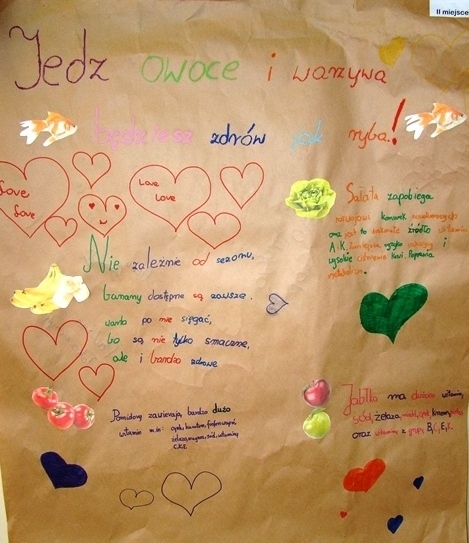 II miejsce
Jedz owoce i warzywa
będziesz zdrów jak ryba!
Love
Love
Love
Love
Sałata zapobiega
rozwojowi komórek nowotworowych
oraz jest to znakomite źródło witamin
A i K.
Nie zależnie od sezonu,
banany dostępne są zawsze.
warto po nie sięgać,
bo są nie tylko smaczne,
ale i bardzo zdrowe
Pomidory zawierają bardzo dużo
witamin m.in:
C,K,E
Jabłka ma dużo witamin,
sód, żelazo,
oraz witaminy z grupy B,C,E,K